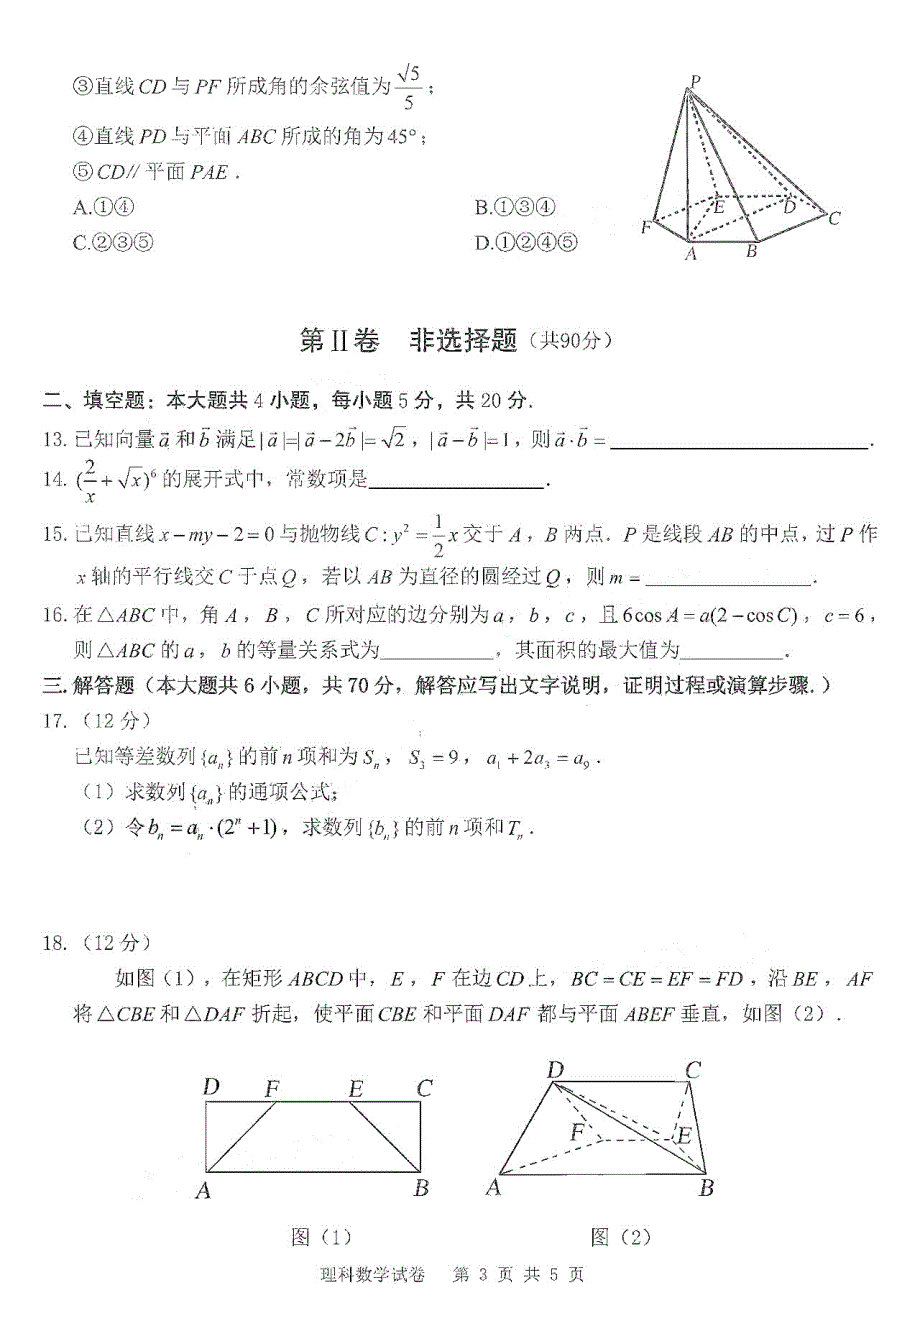 ③直线CD与PF所成角的余弦值为√5/5；
④直线PD与平面ABC所成的角为45°；
⑤CD//平面PAE．
A.①④ B.①③④
C.②③⑤ D.①②④⑤
P
F E D C
A B
第Ⅱ卷 非选择题（共90分）
二、填空题：本大题共4小题，每小题5分，共20分.
13.已知向量a⃗和b⃗满足|a⃗|=|a⃗−2b⃗|=√2，|a⃗−b⃗|=1，则a⃗·b⃗=____________.
14.(2/x+√x)⁶的展开式中，常数项是____________.
15.已知直线x−my−2=0与抛物线C:y²=1/2x交于A，B两点．P是线段AB的中点，过P作
x轴的平行线交C于点Q，若以AB为直径的圆经过Q，则m=____________.
16.在△ABC中，角A，B，C所对应的边分别为a，b，c，且6cosA=a(2−cosC)，c=6，
则△ABC的a，b的等量关系式为__________，其面积的最大值为__________.
三.解答题（本大题共6小题，共70分，解答应写出文字说明，证明过程或演算步骤.）
17.（12分）
已知等差数列{aₙ}的前n项和为Sₙ，S₃=9，a₁+2a₃=a₉．
（1）求数列{aₙ}的通项公式；
（2）令bₙ=aₙ·(2ⁿ+1)，求数列{bₙ}的前n项和Tₙ．
18.（12分）
如图（1），在矩形ABCD中，E，F在边CD上，BC=CE=EF=FD，沿BE，AF
将△CBE和△DAF折起，使平面CBE和平面DAF都与平面ABEF垂直，如图（2）．
D F E C
A B
D C
F E
A B
图（1） 图（2）
理科数学试卷 第 3 页 共 5 页